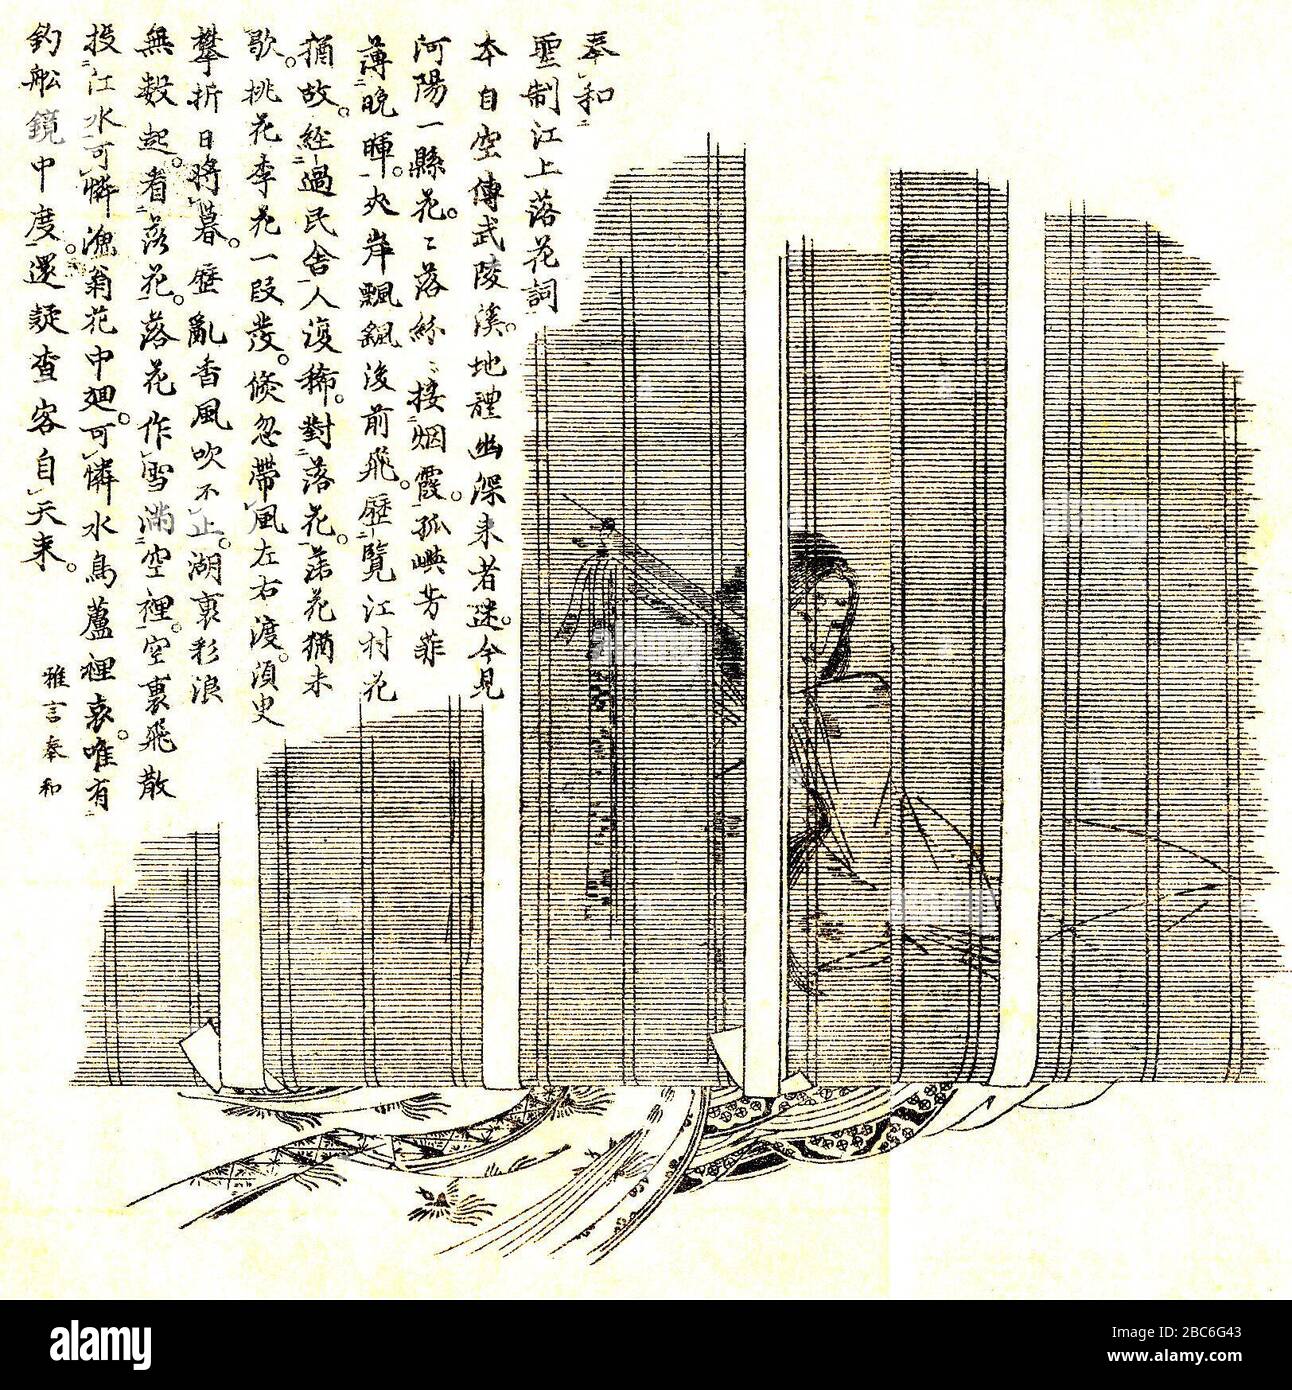 奉和
聖制江上落花詞
本自空傳武陵溪。地體幽深来者迷。今見
河陽一縣花。〻落絲〻接烟霞。孤嶼芳菲
薄晩暉。夾岸飄颻後前飛。歴覽江村花
猶故。経過民舎人復稀。對落花。落花猶未
歇。桃花李花一段發。倐忽帶風左右渡。須臾
攀折日將暮。歴亂香風吹不止。湖裏彩浪
無數起。看落花。落花作雪満空裡。空裏飛散
投江水。可憐漁翁花中廻。可憐水鳥蘆裡哀。唯有
釣舩鏡中度。還疑査客自天来。
雅言奉和
alamy
alamy
alamy
alamy
Image ID: 2BC6G43
www.alamy.com